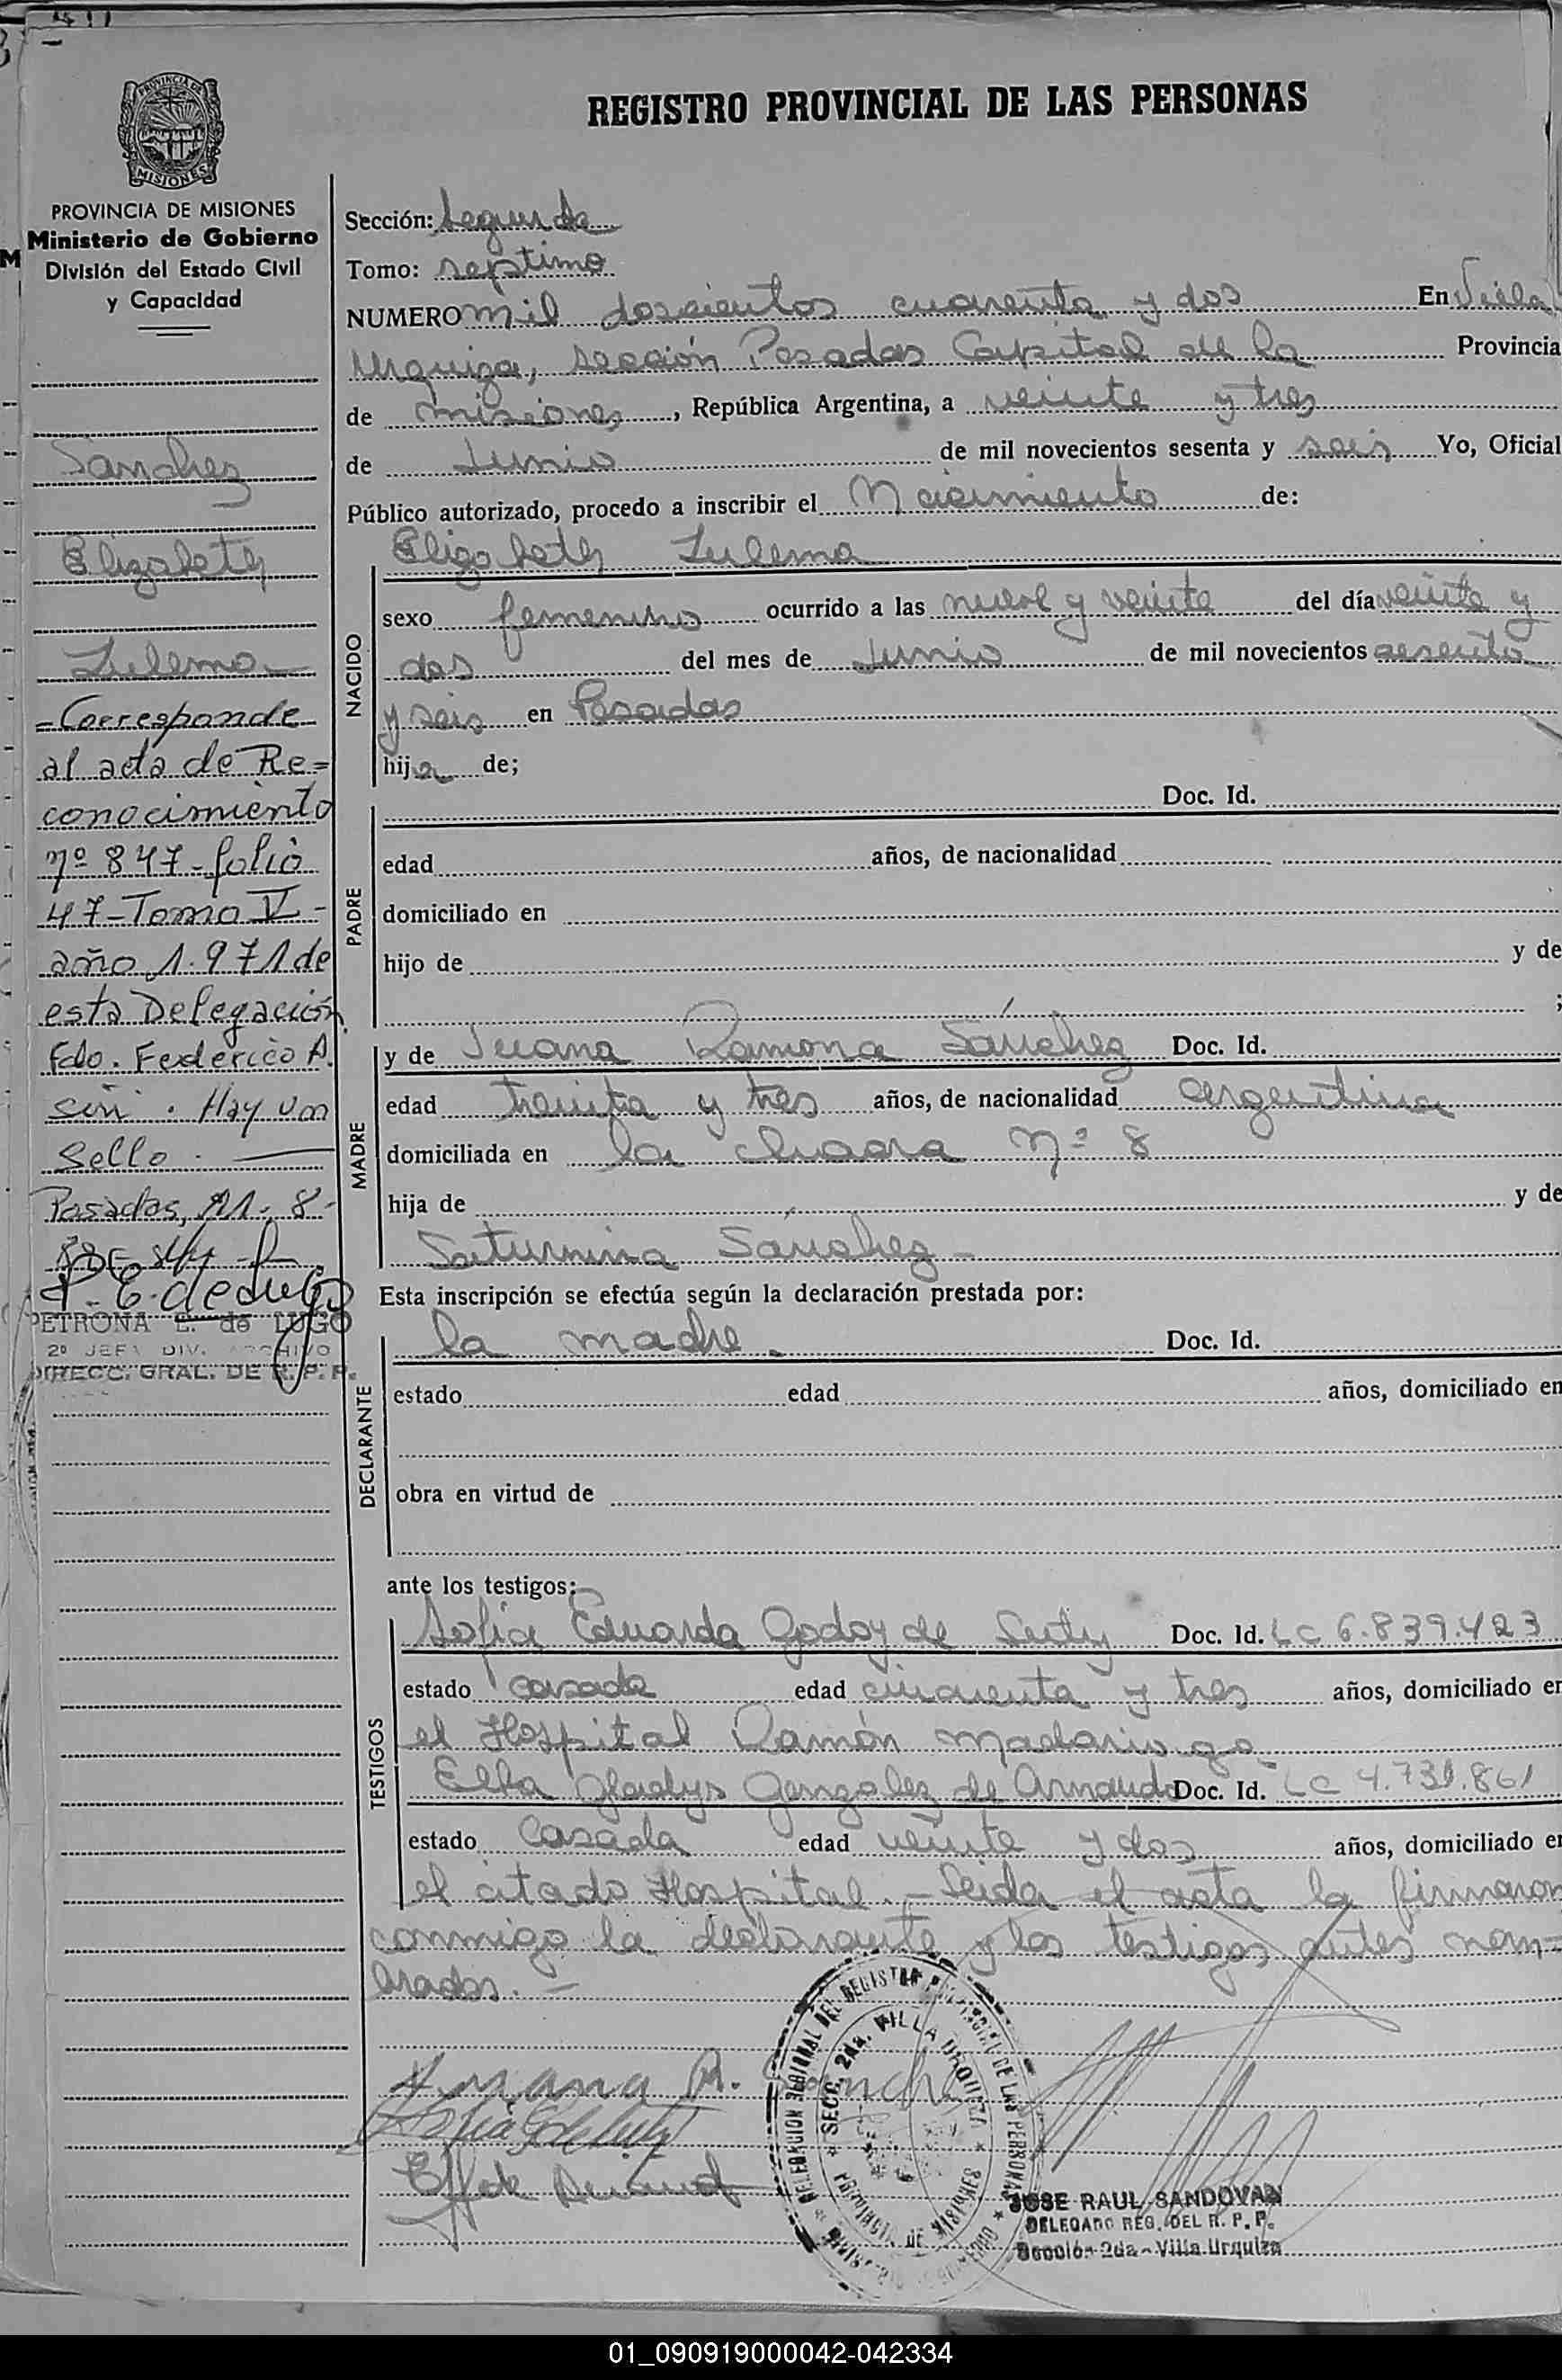 REGISTRO PROVINCIAL DE LAS PERSONAS
PROVINCIA DE
MISIONES
PROVINCIA DE MISIONES
Ministerio de Gobierno
División del Estado Civil
y Capacidad
Sanchez
Elizabeth
Zulema
=Corresponde
al acta de Re=
conocimiento
nº 847-folio
47-Tomo V-
año 1.971 de
esta Delegación
Fdo. Federico A.
Hay un
Sello.
Posadas, 8-
P. E. de Lugo
PETRONA E. de LUGO
2º JEFA DIV. ARCHIVO
DIRECC. GRAL. DE R. P. P.
Sección: Segunda
Tomo: septimo
NUMERO mil doscientos cuarenta y dos En Villa
Urquiza, sección Posadas Capital de la Provincia
de misiones, República Argentina, a veinte y tres
de Junio de mil novecientos sesenta y seis Yo, Oficial
Público autorizado, procedo a inscribir el Nacimiento de:
Elizabeth Zulema
NACIDO
sexo femenino ocurrido a las nueve y veinte del día veinte y
dos del mes de Junio de mil novecientos sesenta
y seis en Posadas
hija de;
Doc. Id.
PADRE
edad años, de nacionalidad
domiciliado en
hijo de y de
;
MADRE
y de Juana Ramona Sánchez Doc. Id.
edad treinta y tres años, de nacionalidad argentina
domiciliada en la chacra Nº 8
hija de y de
Saturnina Sánchez -
Esta inscripción se efectúa según la declaración prestada por:
DECLARANTE
la madre. Doc. Id.
estado edad años, domiciliado en
obra en virtud de
ante los testigos:
TESTIGOS
Sofia Eduarda Godoy de Doc. Id. LC 6.839.423
estado casada edad cincuenta y tres años, domiciliado en
el Hospital Ramón Madariaga
Elba Gladys Gonzalez de Doc. Id. LC 4.731.861
estado Casada edad veinte y dos años, domiciliado en
el citado Hospital.- Leida el acta la firmaron
conmigo la declarante y los testigos antes nom=
brados. -
Juana R. Sanchez
DELEGACION REGIONAL DEL REGISTRO PROVINCIAL DE LAS PERSONAS
SECC. 2da. VILLA URQUIZA
PROVINCIA DE MISIONES
JOSE RAUL SANDOVAL
DELEGADO REG. DEL R. P. P.
Sección 2da - Villa Urquiza
01_090919000042-042334